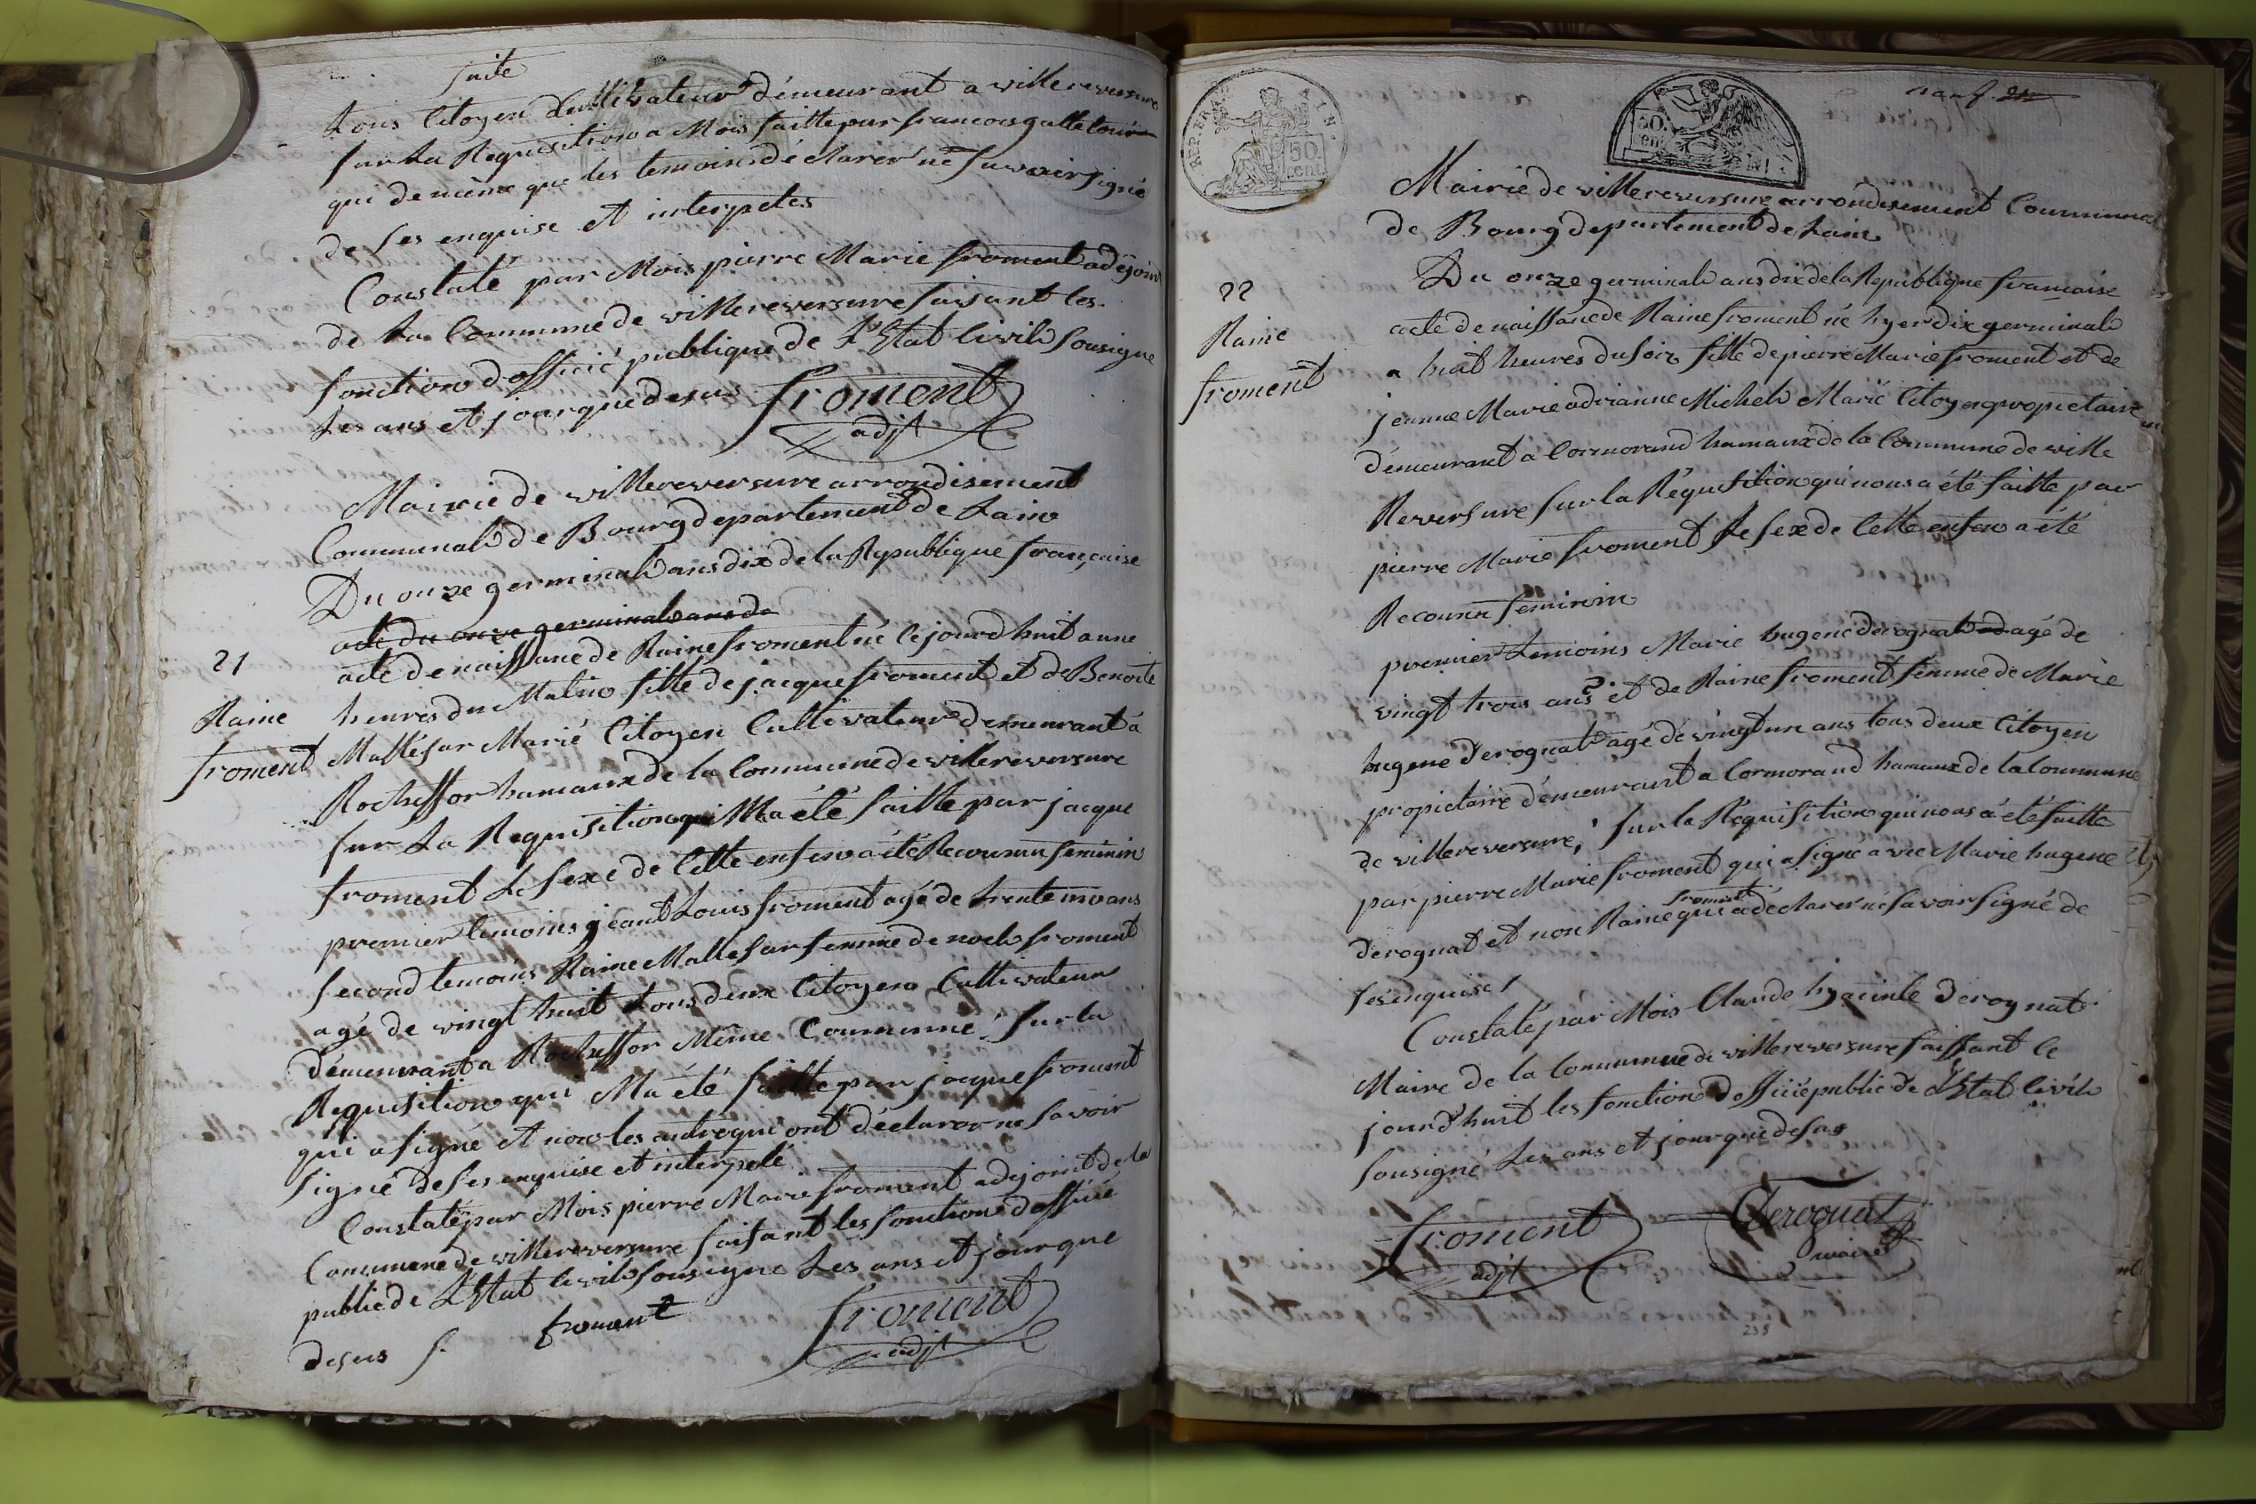 suite
tous Citoyen Cultivateur démeurant a villereversure
sur La Requisition a Mois faitte par francois
qui de même que les temoins déclarer ne savoir signé
de ses enquise et interpeles
Constaté par Mois pierre Marie froment adejoint
de La Commune de villereversure faisant les
fonction d'officié publique de L'Etat Civile sousigne
Les ans et jour que desus
froment
adjt
Mairie de villereversure arrondisement
Communal de Bourg departement de Lain
Du onze germinal ans dix de la Republique française
acte du onze germinal ans de
21
acte de naissance de Raine froment né le jourd huit a une
Raine
heures du Matin fille de jacque froment et de Benoite
froment
Mallesar Marié Citoyen Cultivateur demeurant à
Rocheffor hamaux de la Commune de villereversure
sur La Requisition qui Ma été faitte par jacque
froment Le sexe de Cette enfen a été Reconnu feminin
premier temoins géant Louis froment agé de trente un ans
second temoins Raine Mallesar femme de noel froment
agé de vingt huit tous deux Citoyen Cultivateur
démeurant a Rocheffor Même Commune sur la
Requisition qui Ma été faitte par jacque froment
qui a signé et non les autre qui ont déclarer ne savoir
signé de ses enquise et interpelé
Constaté par Mois pierre Marie froment adejoint de la
Commune de villereversure faisant les fonction d'officié
public de L'Etat Civile sousigné Les ans et jour que
desus
froment
froment
adjt
REP. FRA. AIN.
50. cent.
50. cent.
Mairie de villereversure arrondisement Communal
de Bourg departement de Lain
Du onze germinal ans dix de la Republique francaise
22
Raine
froment
acte de naissance de Raine froment né hyer dix germinal
a huit heures du soir fille de pierre Marie froment et de
jeanne Marie adrianne Michel Marié Citoyen propietaire
démeurant a Cormorand hamaux de la Commune de ville
Reversure sur la Réquisition qui nous a été faitte par
pierre Marie froment Le sexe de Cette enfen a été
Reconnu feminin
premier temoins Marie hugene derognat agé de
vingt trois ans et de Raine froment femme de Marie
hugene derognat agé de vingt un ans tous deux Citoyen
propietaire démeurant a Cormorand hamaux de la Commune
de villereversure, sur la Réquisition qui nous a été faitte
par pierre Marie froment qui a signé avec Marie hugene
froment
derognat et non Raine qui a déclarer ne savoir signé de
ses enquise
Constaté par Mois Claude hyacinte derognat
Maire de la Commune de villereversure faissant le
jourd'huit les fonction d'officié public de L'Etat Civile
sousigné Les ans et jour que desus
froment
adjt
Derognat
maire
235